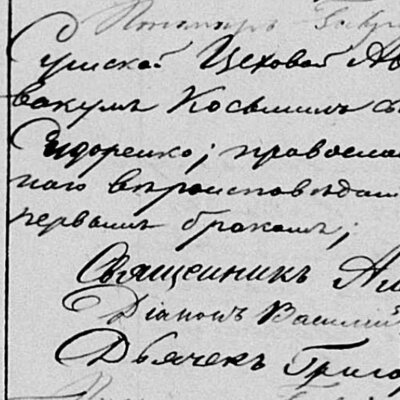 Пономарь Григ
Сумской Цеховой Ав
вакумъ Косьминъ с
Сидоренко; православ
наго вѣроисповѣдан
первымъ бракомъ;
Священникъ Ал
Діаконъ Василій
Дьячекъ Григо